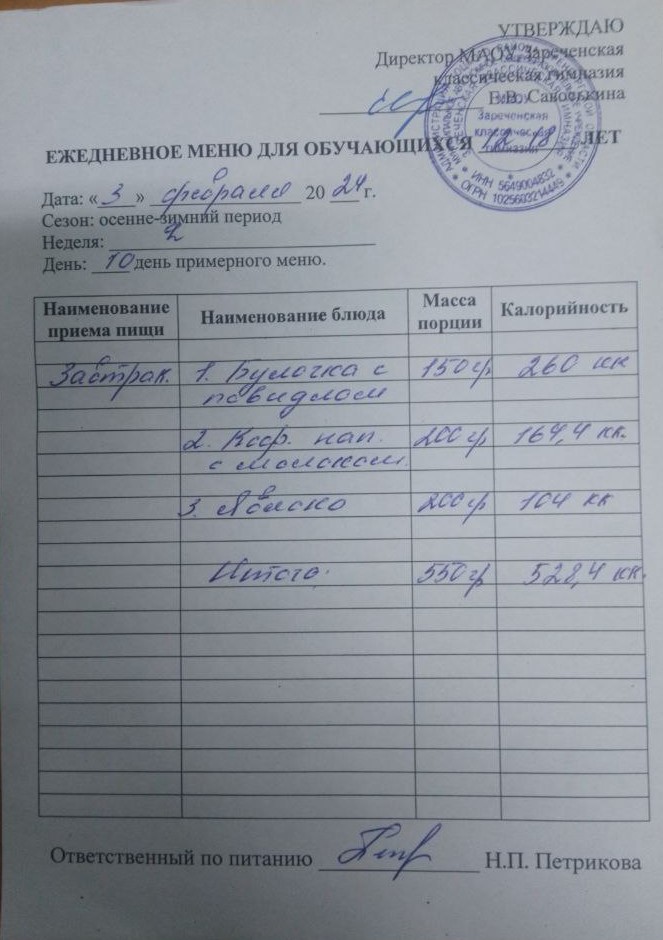 УТВЕРЖДАЮ
Директор МАОУ Зареченская
классическая гимназия
Е.В. Савоськина
ЕЖЕДНЕВНОЕ МЕНЮ ДЛЯ ОБУЧАЮЩИХСЯ 12-18 ЛЕТ
Зареченская
классическая
гимназия
ИНН 5649004832
ОГРН 1025603214449
Дата: «3» февраля 2024 г.
Сезон: осенне-зимний период
Неделя: 2
День: 10 день примерного меню.
Наименование приема пищи Наименование блюда Масса порции Калорийность
Завтрак. 1. Булочка с 150 гр 260 кк
повидлом
2. Коф. нап. 200 гр 164,4 кк.
с молоком.
3. Яблоко 200 гр 104 кк
Итого: 550 гр 528,4 кк.
Ответственный по питанию Н.П. Петрикова